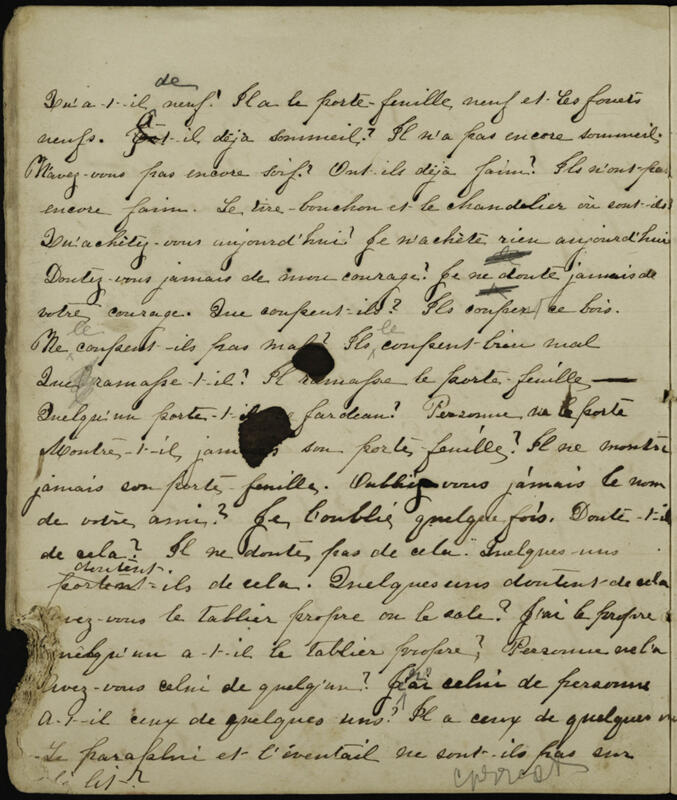 de
Qu'a-t-il neuf? Il a le porte-feuille neuf et les fouets
neufs. A-t-il déja sommeil? Il n'a pas encore sommeil.
N'avez-vous pas encore soif? Ont-ils déja faim? Ils n'ont-pas
encore faim. Le tire-bouchon et le chandelier où sont-ils?
Qu'achêtez-vous aujourd'hui? Je n'achète rien aujourd'hui
Doutez-vous jamais de mon courage? Je ne doute jamais de
votre courage. Que coupent-ils? Ils coupent ce bois.
Ne le coupent-ils pas mal? Ils le coupent bien mal
Que ramasse-t-il? Il ramasse le porte-feuille
Quelqu'un porte-t-il fardeau? Personne ne le porte
Montre-t-il jamais son porte-feuille? Il ne montre
jamais son porte-feuille. Oubliez-vous jamais le nom
de votre ami? Je l'oublie quelque fois. Doute-t-il
de cela? Il ne doute pas de cela. Quelques-uns
doutent
portent-ils de cela. Quelques uns doutent-de cela
vez-vous le tablier propre ou le sale? J'ai le propre
uelqu'un a-t-il le tablier propre? Personne ne l'a
Avez-vous celui de quelqu'un? J'ai celui de personne
A-t-il ceux de quelques uns? Il a ceux de quelques un
Le parapluie et l'éventail ne sont-ils pas sur
lit?